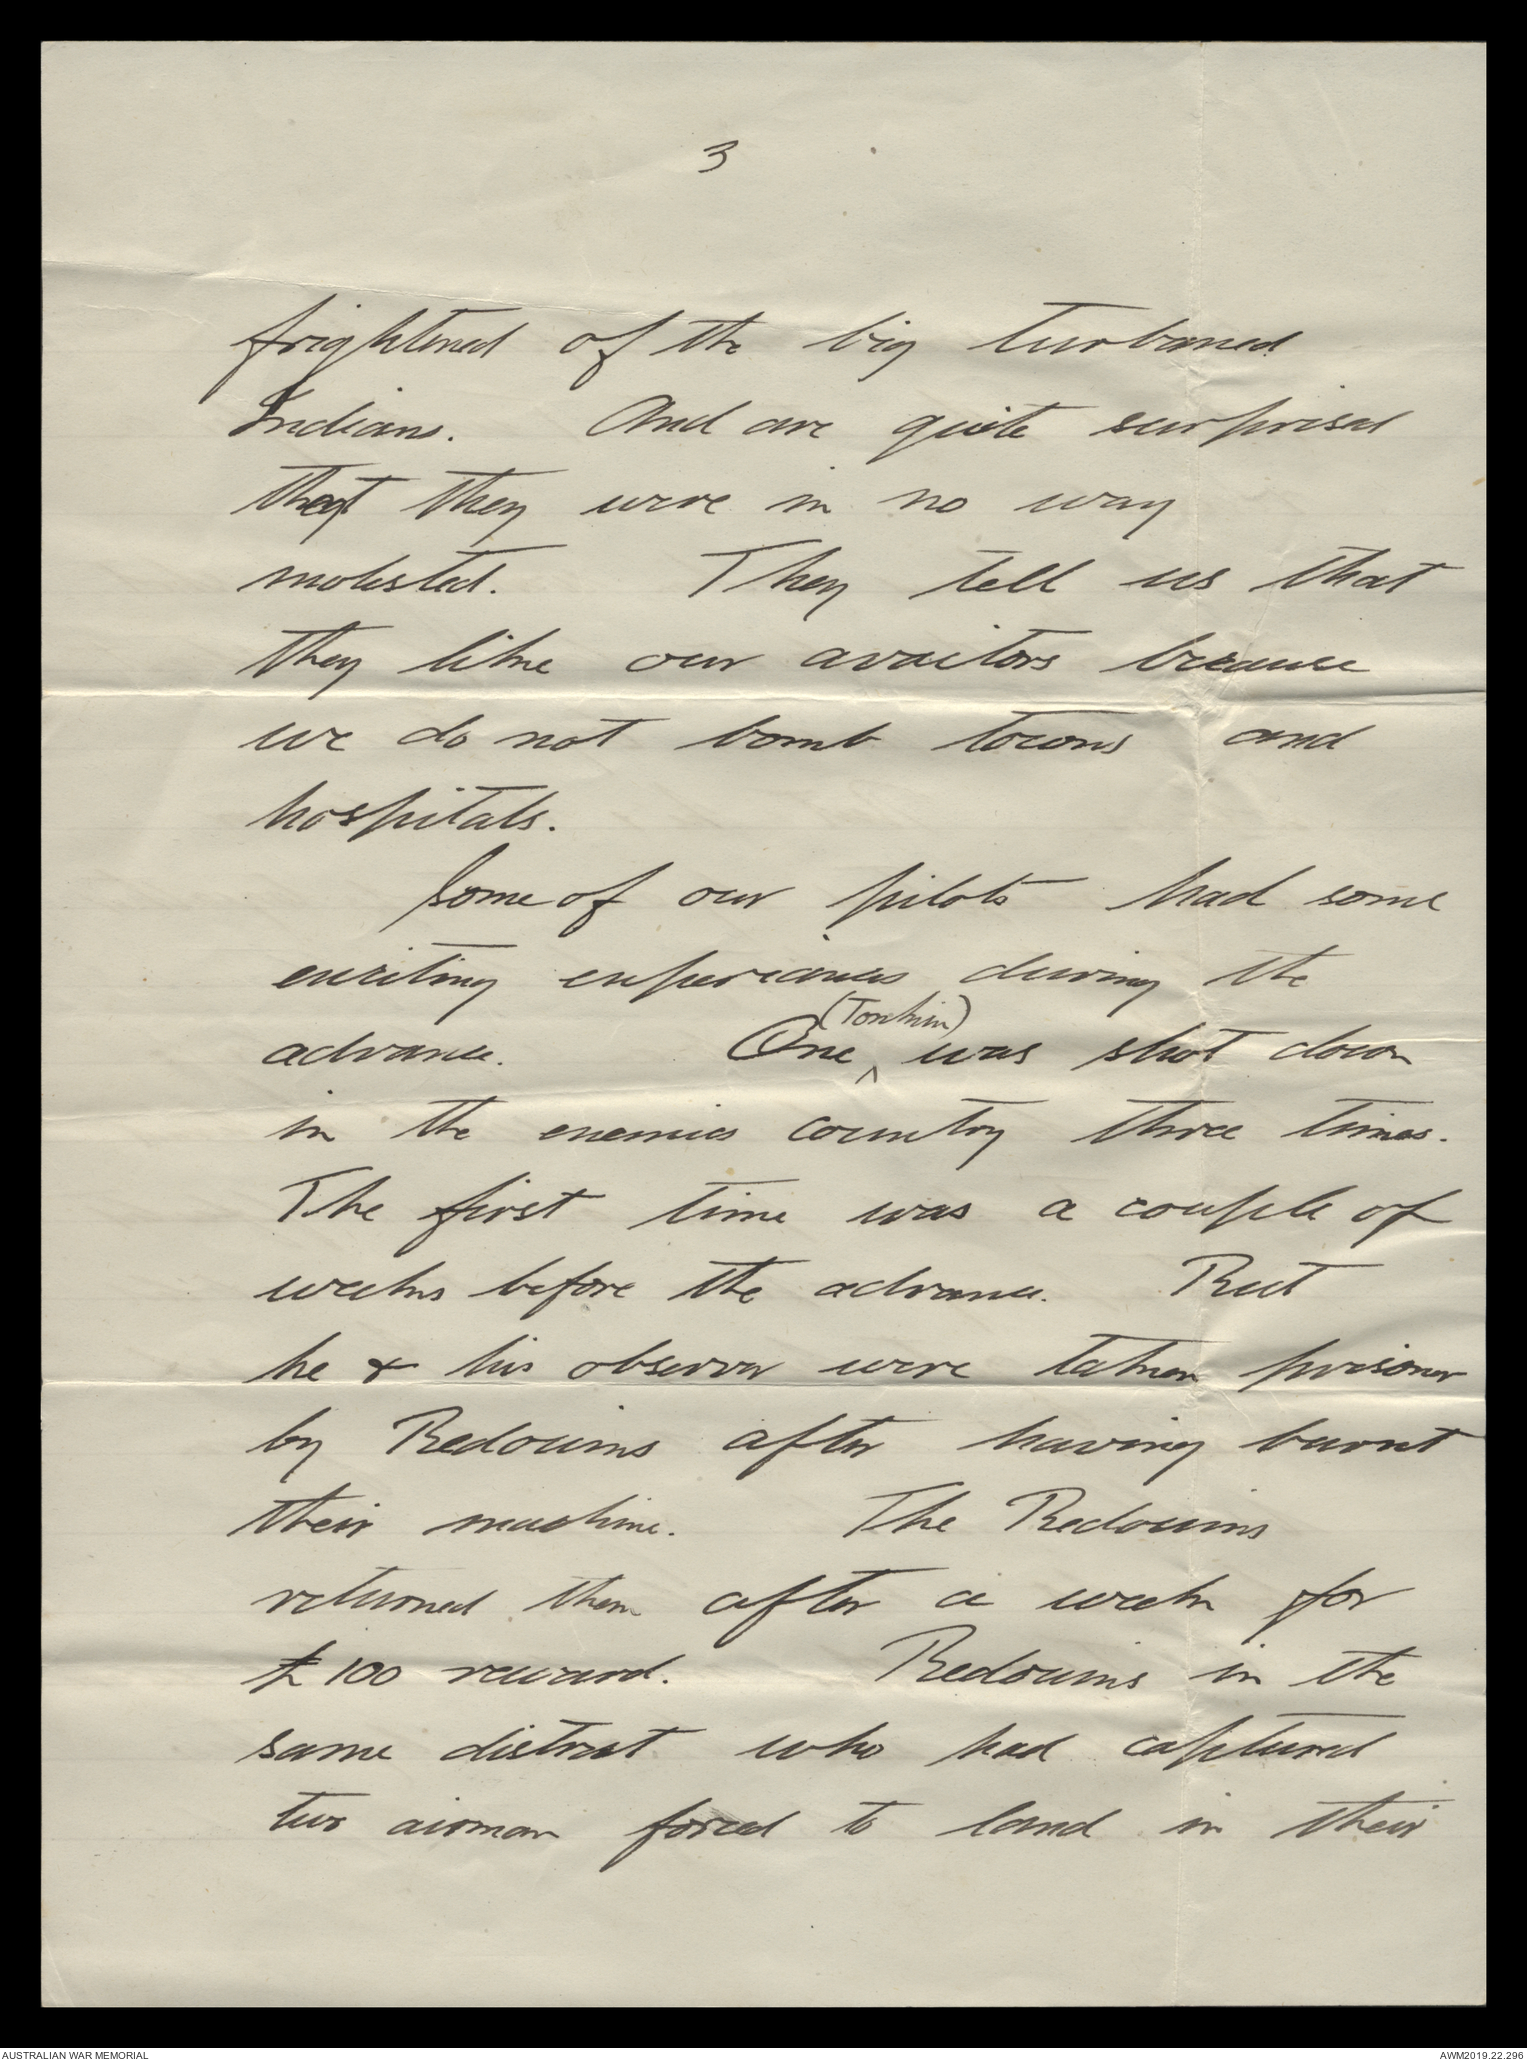 3
frightened of the big turbaned
Indians. And are quite surprised
that they were in no way
molested. They tell us that
they like our avaitors because
we do not bomb towns and
hospitals.
Some of our pilots had some
exciting experiences during the
(Tonkin)
advance. One ^ was shot down
in the enemies country three times.
The first time was a couple of
weeks before the advance. But
he & his observer were taken prisoner
by Bedouins after having burnt
their machine. The Bedouins
returned them after a week for
£100 reward. Bedouins in the
same district who had captured
two airman forced to land in their
AUSTRALIAN WAR MEMORIAL
AWM2019.22.296